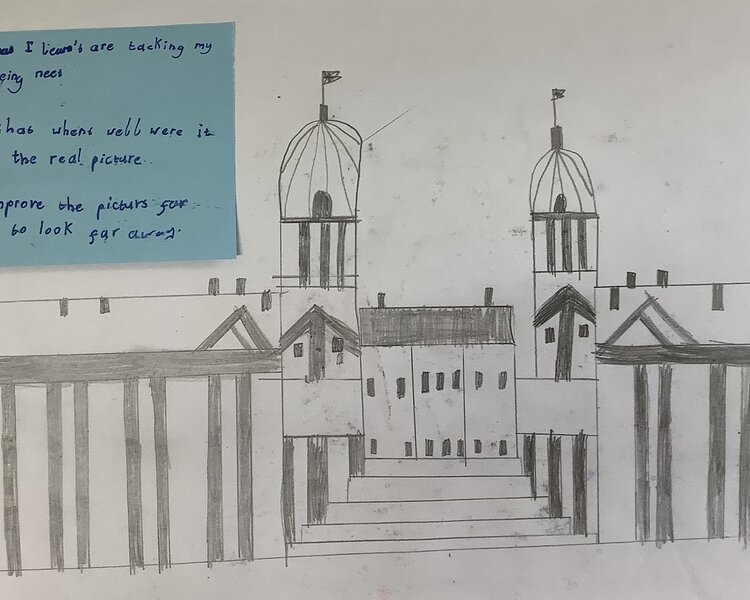 I learn's are tacking my
eing need
thas whens well were it
the real picture.
prove the picturs for
to look far away.